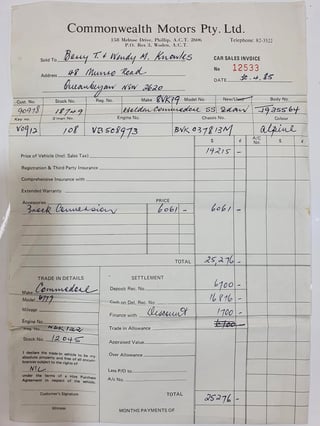 Commonwealth Motors Pty. Ltd.
150 Melrose Drive, Phillip, A.C.T. 2606
P.O. Box 3, Woden, A.C.T.
Telephone: 82-3322
Sold To Barry T. & Wendy M. Knowles
CAR SALES INVOICE
No 12533
Address 48 Munro Road
Queanbeyan NSW 2620
DATE .4.85
Cust. No. Stock No. Reg. No. Make 8VK19 Model No. New/Used Body No.
90978 18749 Holden Commodore SS Sedan J935564
Key No. Eng. No. Engine No. Chassis No. Colour
V0912 108 VD508973 8VK 037813M Alpine
$ ¢ A/C No. $ ¢
Price of Vehicle (Incl. Sales Tax) 19215 -
Registration & Third Party Insurance
Comprehensive Insurance with
Extended Warranty
Accessories PRICE
Brock Conversion 6061 - 6061 -
TOTAL 25,276 -
TRADE IN DETAILS SETTLEMENT
Make Commodore Deposit Rec. No. 6700 -
Model Cash on Del. Rec. No. 16876 -
Mileage Finance with Discount 1700 -
Engine No. Trade in Allowance
Reg. No. Appraised Value
Stock No. 12045 Over Allowance
I declare the trade-in vehicle to be my
absolute property and free of all encumbrances subject to the rights of
NIL Less P/O to
under the terms of a Hire Purchase
Agreement in respect of the vehicle. A/c No.
Customer's Signature TOTAL 25276 -
Witness MONTHS PAYMENTS OF